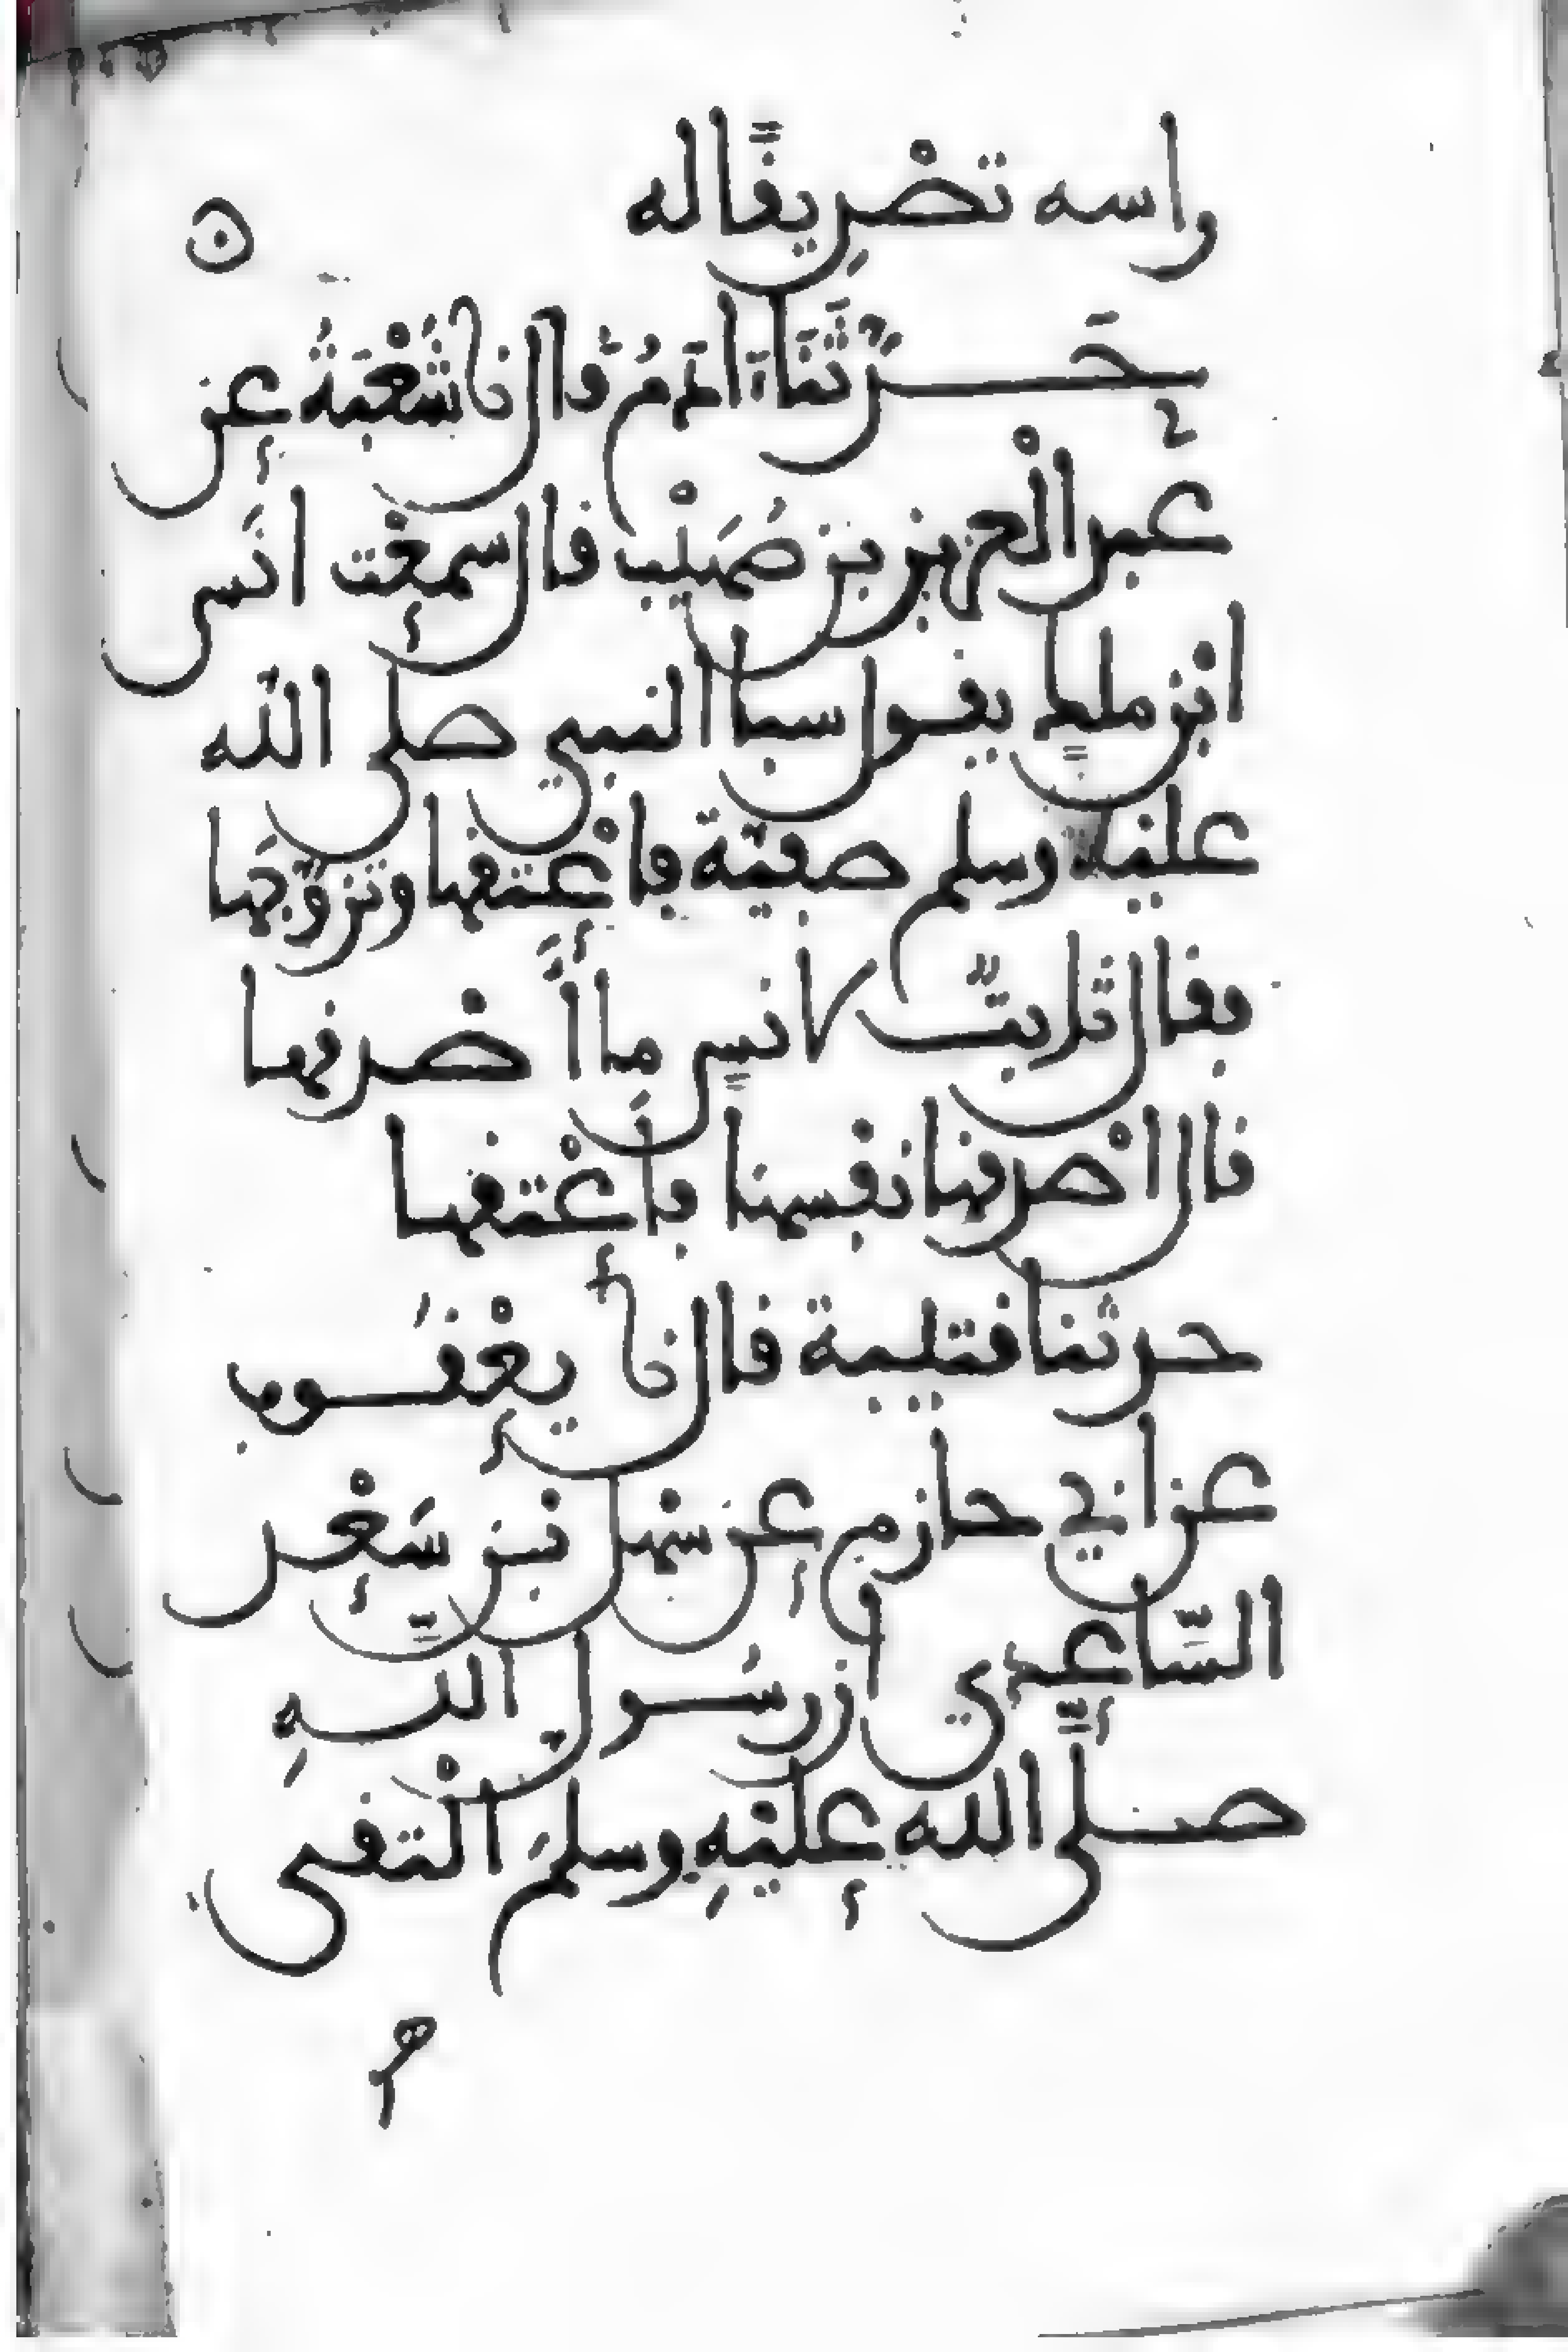 راسه تصْدِيقًا له ن
حَدَّثَنَا ءَادَمُ قال نا شُعْبَةُ عن
عبد الْعزيز بن صُهَيْب قال سمعْت أنَس
ابن ملكٍ يقول سبا النبي صلى الله
عليه وسلم صفيّة فأعْتقها وتزوَّجَها
فقال ثابتٌ لأنسٍ ما أَصْدقها
قال أصْدقها نفْسها فأَعْتقها
حدثنا قتيبة قال نا يعْقُوب
عن ابي حازم عن سهْل بْن سَعْدٍ
السَّاعدي ان رسُول اللهِ
صلَّى الله عليْهِ وسلمَ الْتقى
هو